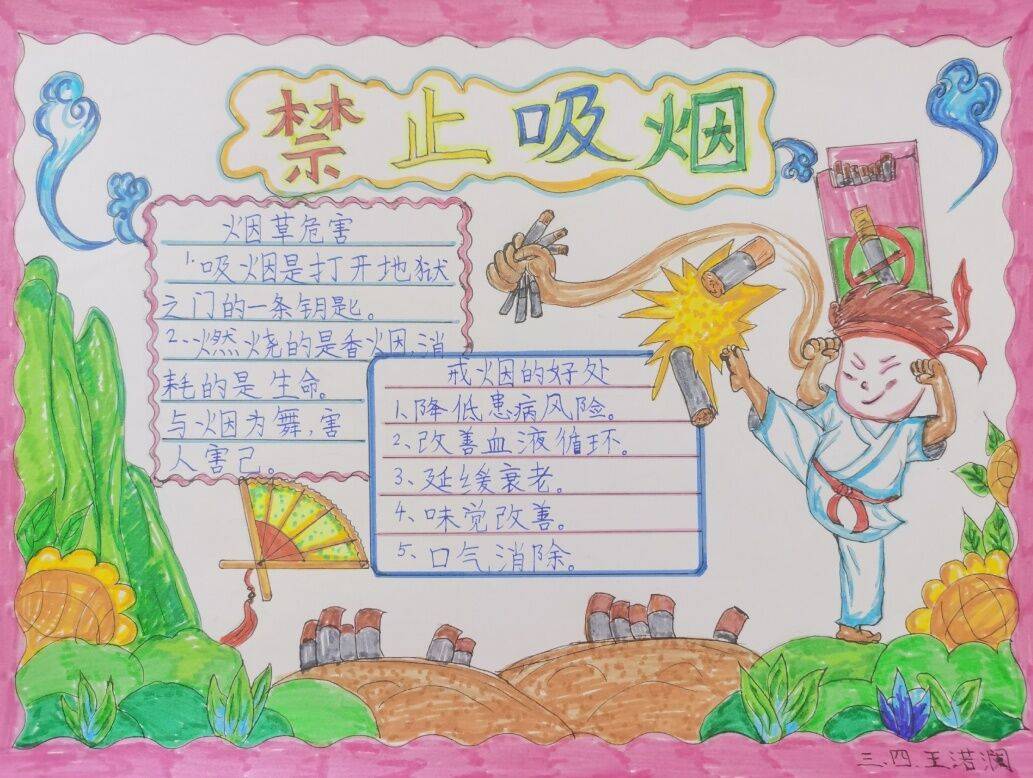 禁止吸烟
烟草危害
1.吸烟是打开地狱
之门的一条钥匙。
2、燃烧的是香烟,消
耗的是生命。
与烟为舞,害
人害己。
戒烟的好处
1、降低患病风险。
2、改善血液循环。
3、延缓衰老。
4、味觉改善。
5、口气消除。
三.四.王渃澜